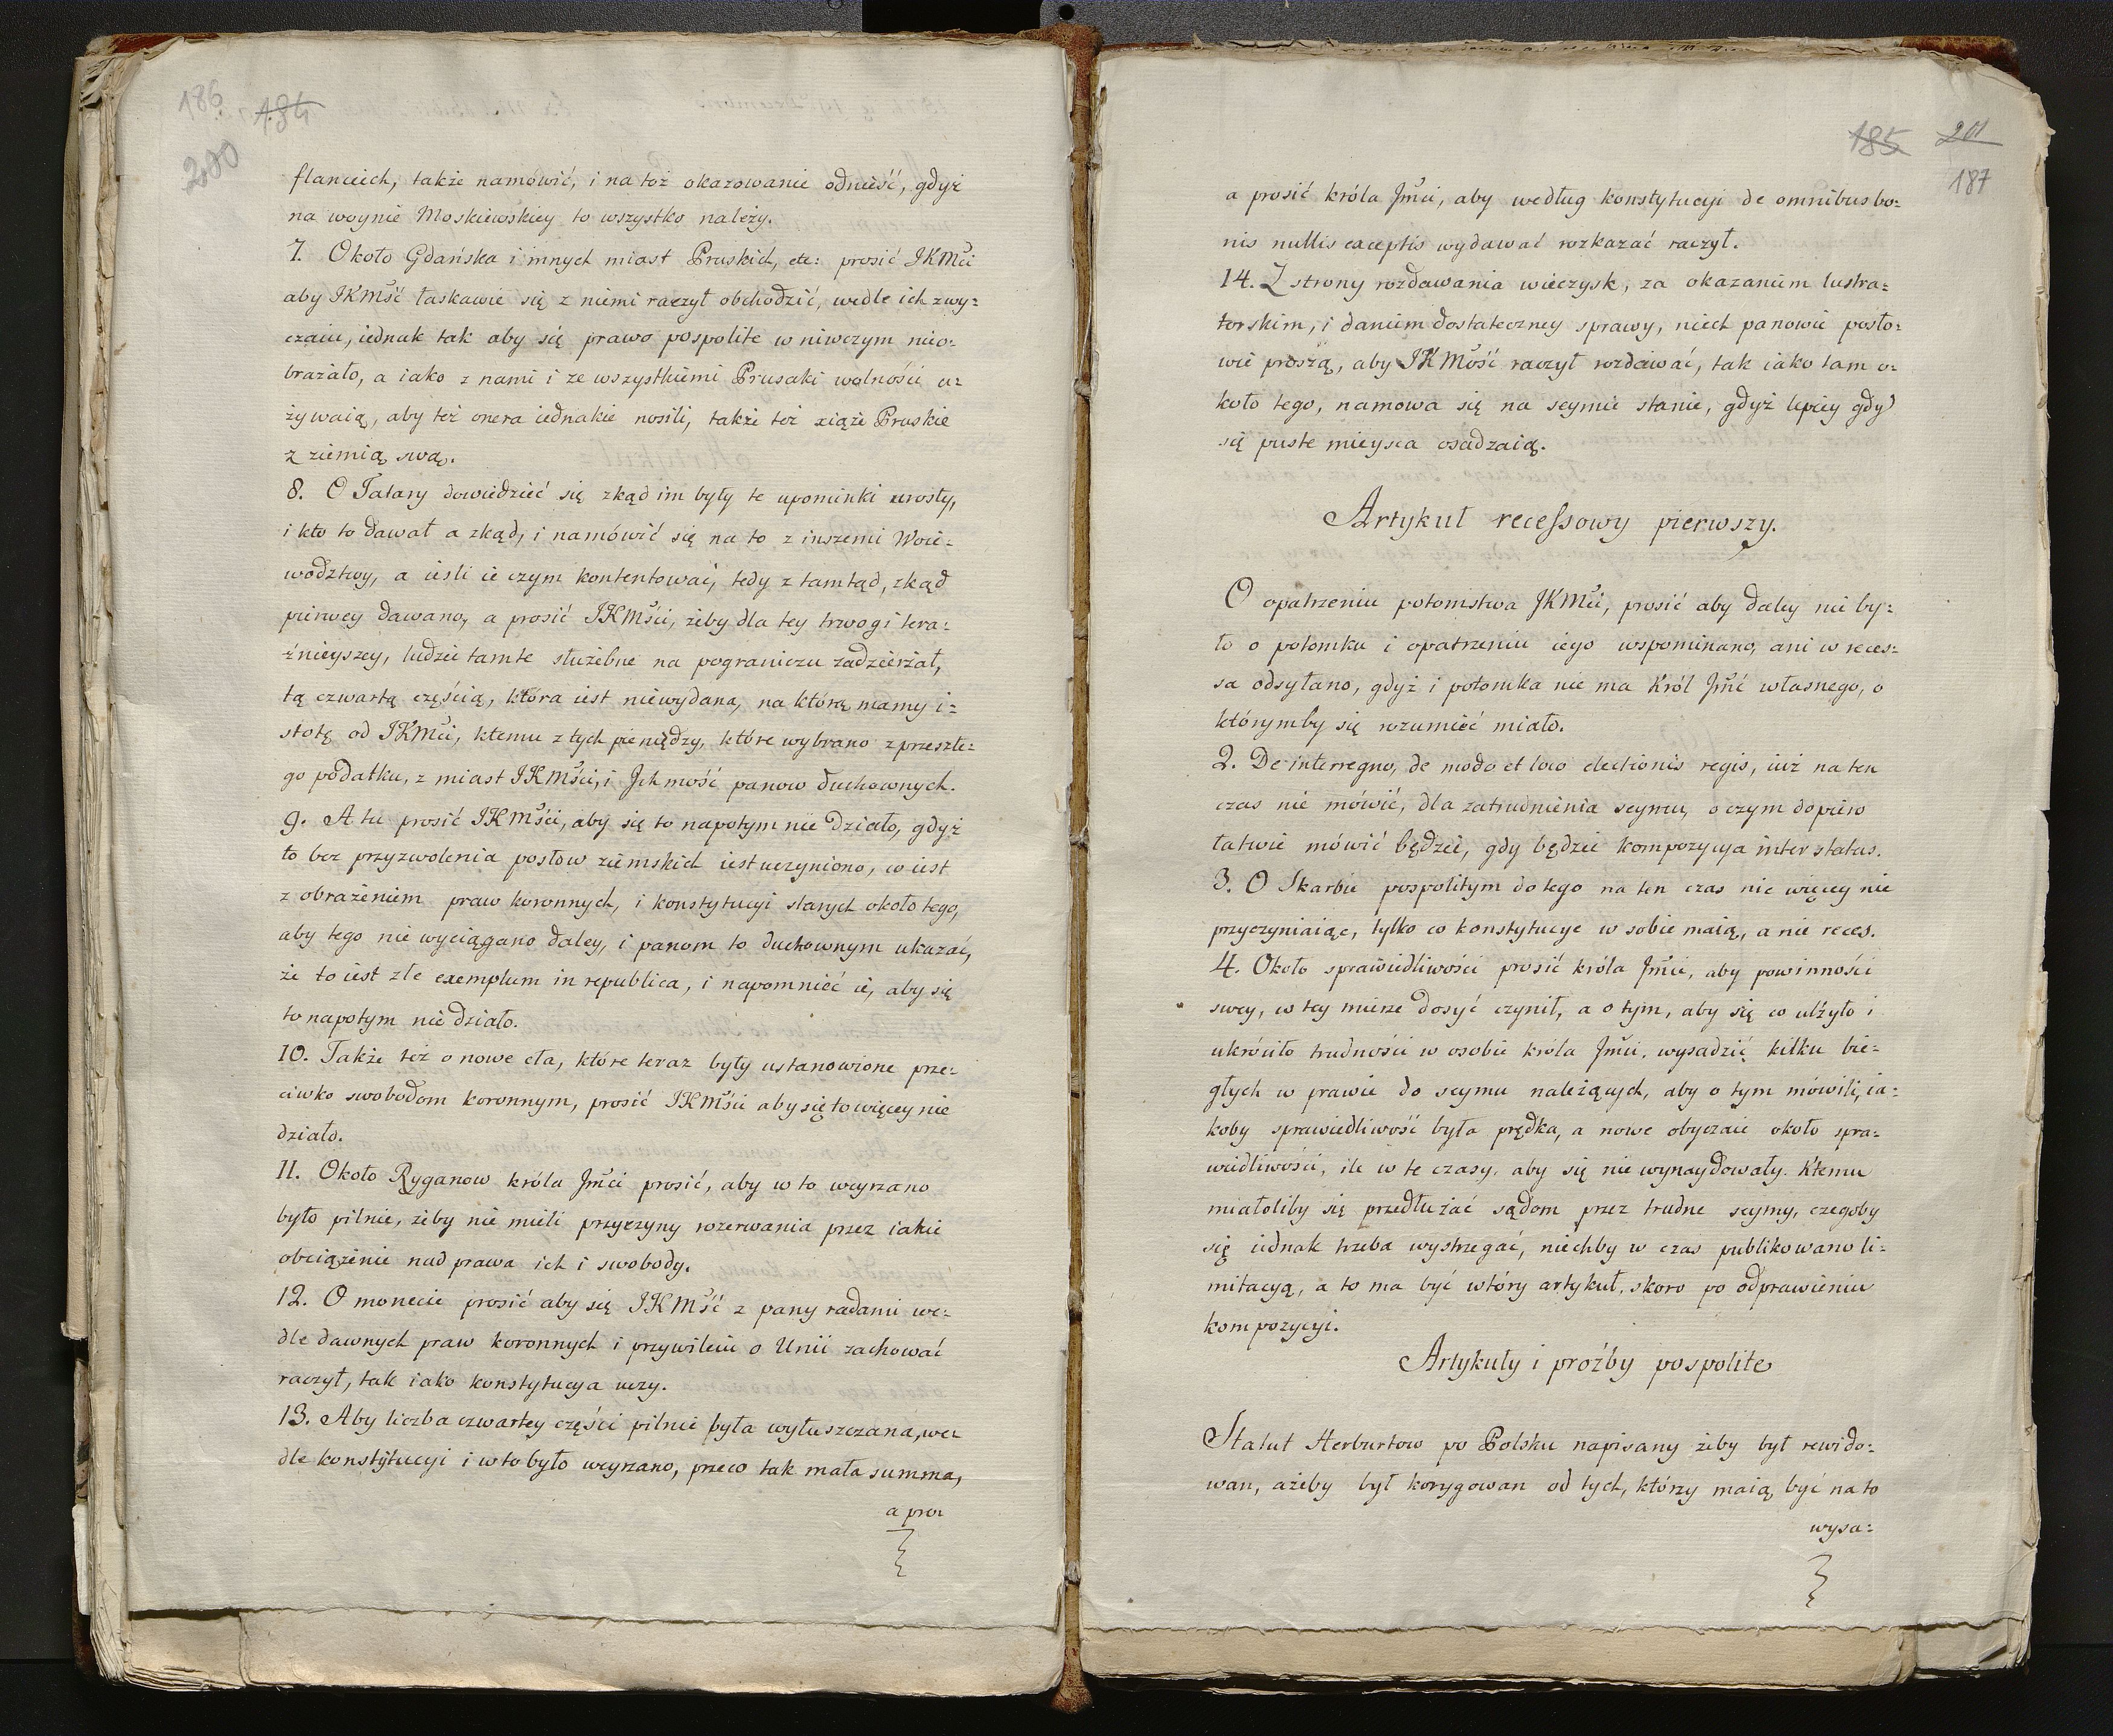 186 184
200
flanciech, także namówić, i na toż okazowanie odnieść, gdyż
na woynie Moskiewskiey to wszystko należy.
7. Około Gdańska i innych miast Pruskich, etc: prosić JKMci
aby JKMść łaskawie się z niemi raczył obchodzić, wedle ich zwy=
czaiu, iednak tak aby się prawo pospolite w niwczym nieo=
brażało, a iako z nami i ze wszystkiemi Prusaki wolności u=
żywaią, aby też onera iednakie nosili, także też xiąże Pruskie
z ziemią swą.
8. O Tatary dowiedzieć się zkąd im były te upominki urosły,
i kto to dawał a zkąd, i namówić się na to z inszemi Woie=
wodztwy, a iesli ie czym kontentować, tedy z tamtąd, zkąd
pierwey dawano, a prosić JKMści, żeby dla tey trwogi tera=
źnieyszey, ludzie tamte służebne na pograniczu zadzierżał,
tą czwartą częścią, która iest niewydana, na którą mamy i=
stotę od JKMci, ktemu z tych pieniędzy, które wybrano z przeszłe=
go podatku, z miast JKMści, i Jchmość panow duchownych.
9. A tu prosić JKMści, aby się to napotym nie działo, gdyż
to bez przyzwolenia posłow ziemskich iest uczyniono, co iest
z obrażeniem praw koronnych, i konstytucyi starych około tego,
aby tego nie wyciągano daley, i panom to duchownym ukazać,
że to iest złe exemplum in republica, i napomnieć ie, aby się
to napotym nie działo.
10. Także też o nowe cła, które teraz były ustanowione prze=
ciwko swobodom koronnym, prosić JKMści aby się to więcey nie
działo.
11. Około Ryganow króla Jmci prosić, aby w to weyrzano
było pilnie, żeby nie mieli przyczyny rozerwania przez iakie
obciążenie nad prawa ich i swobody.
12. O monecie prosić aby się JKMść z pany radami we=
dle dawnych praw koronnych i przywileiu o Unii zachować
raczył, tak iako konstytucya uczy.
13. Aby liczba czwartey części pilnie była wytłuszczana, we=
dle konstytucyi i w to było weyrzano, przeco tak mała summa,
a pro=
185 201
187
a prosić króla Jmci, aby według konstytucyi de omnibus bo=
nis nullis exceptis wydawać rozkazać raczył.
14. Z strony rozdawania wieczysk, za okazaniem lustra=
torskim, i daniem dostateczney sprawy, niech panowie posło=
wie proszą, aby JKMość raczył rozdawać, tak iako tam o=
koło tego, namowa się na seymie stanie, gdyż lepiey gdy
się puste mieysca osadzaią.
Artykuł recessowy pierwszy.
O opatrzeniu potomstwa JKMci, prosić aby daley nie by=
ło o potomku i opatrzeniu iego wspominano, ani w reces=
sa odsyłano, gdyż i potomka nie ma Król Jmć własnego, o
którymby się rozumieć miało.
2. De interregno, de modo et loco electionis regis, iuż na ten
czas nie mówić, dla zatrudnienia seymu, o czym dopiero
łatwie mówić będzie, gdy będzie kompozycya inter status.
3. O Skarbie pospolitym do tego na ten czas nic więcey nie
przyczyniaiąc, tylko co konstytucye w sobie maią, a nie reces.
4. Około sprawiedliwości prosić króla Jmci, aby powinności
swey, w tey mierze dosyć czynił, a o tym, aby się co ulżyło i
ukróciło trudności w osobie króla Jmci, wysadzić kilku bie=
głych w prawie do seymu należących, aby o tym mówili, ia=
koby sprawiedliwość była prędka, a nowe obyczaie około spra=
wiedliwości, ile w te czasy, aby się nie wynaydowały. Ktemu
miałoliby się przedłużać sądom przez trudne seymy, czegoby
się iednak trzeba wystrzegać, niechby w czas publikowano li=
mitacyą, a to ma być wtóry artykuł, skoro po odprawieniu
kompozycyi.
Artykuły i proźby pospolite
Statut Herburtow po Polsku napisany żeby był rewido=
wan, ażeby był korygowan od tych, którzy maią być na to
wysa=